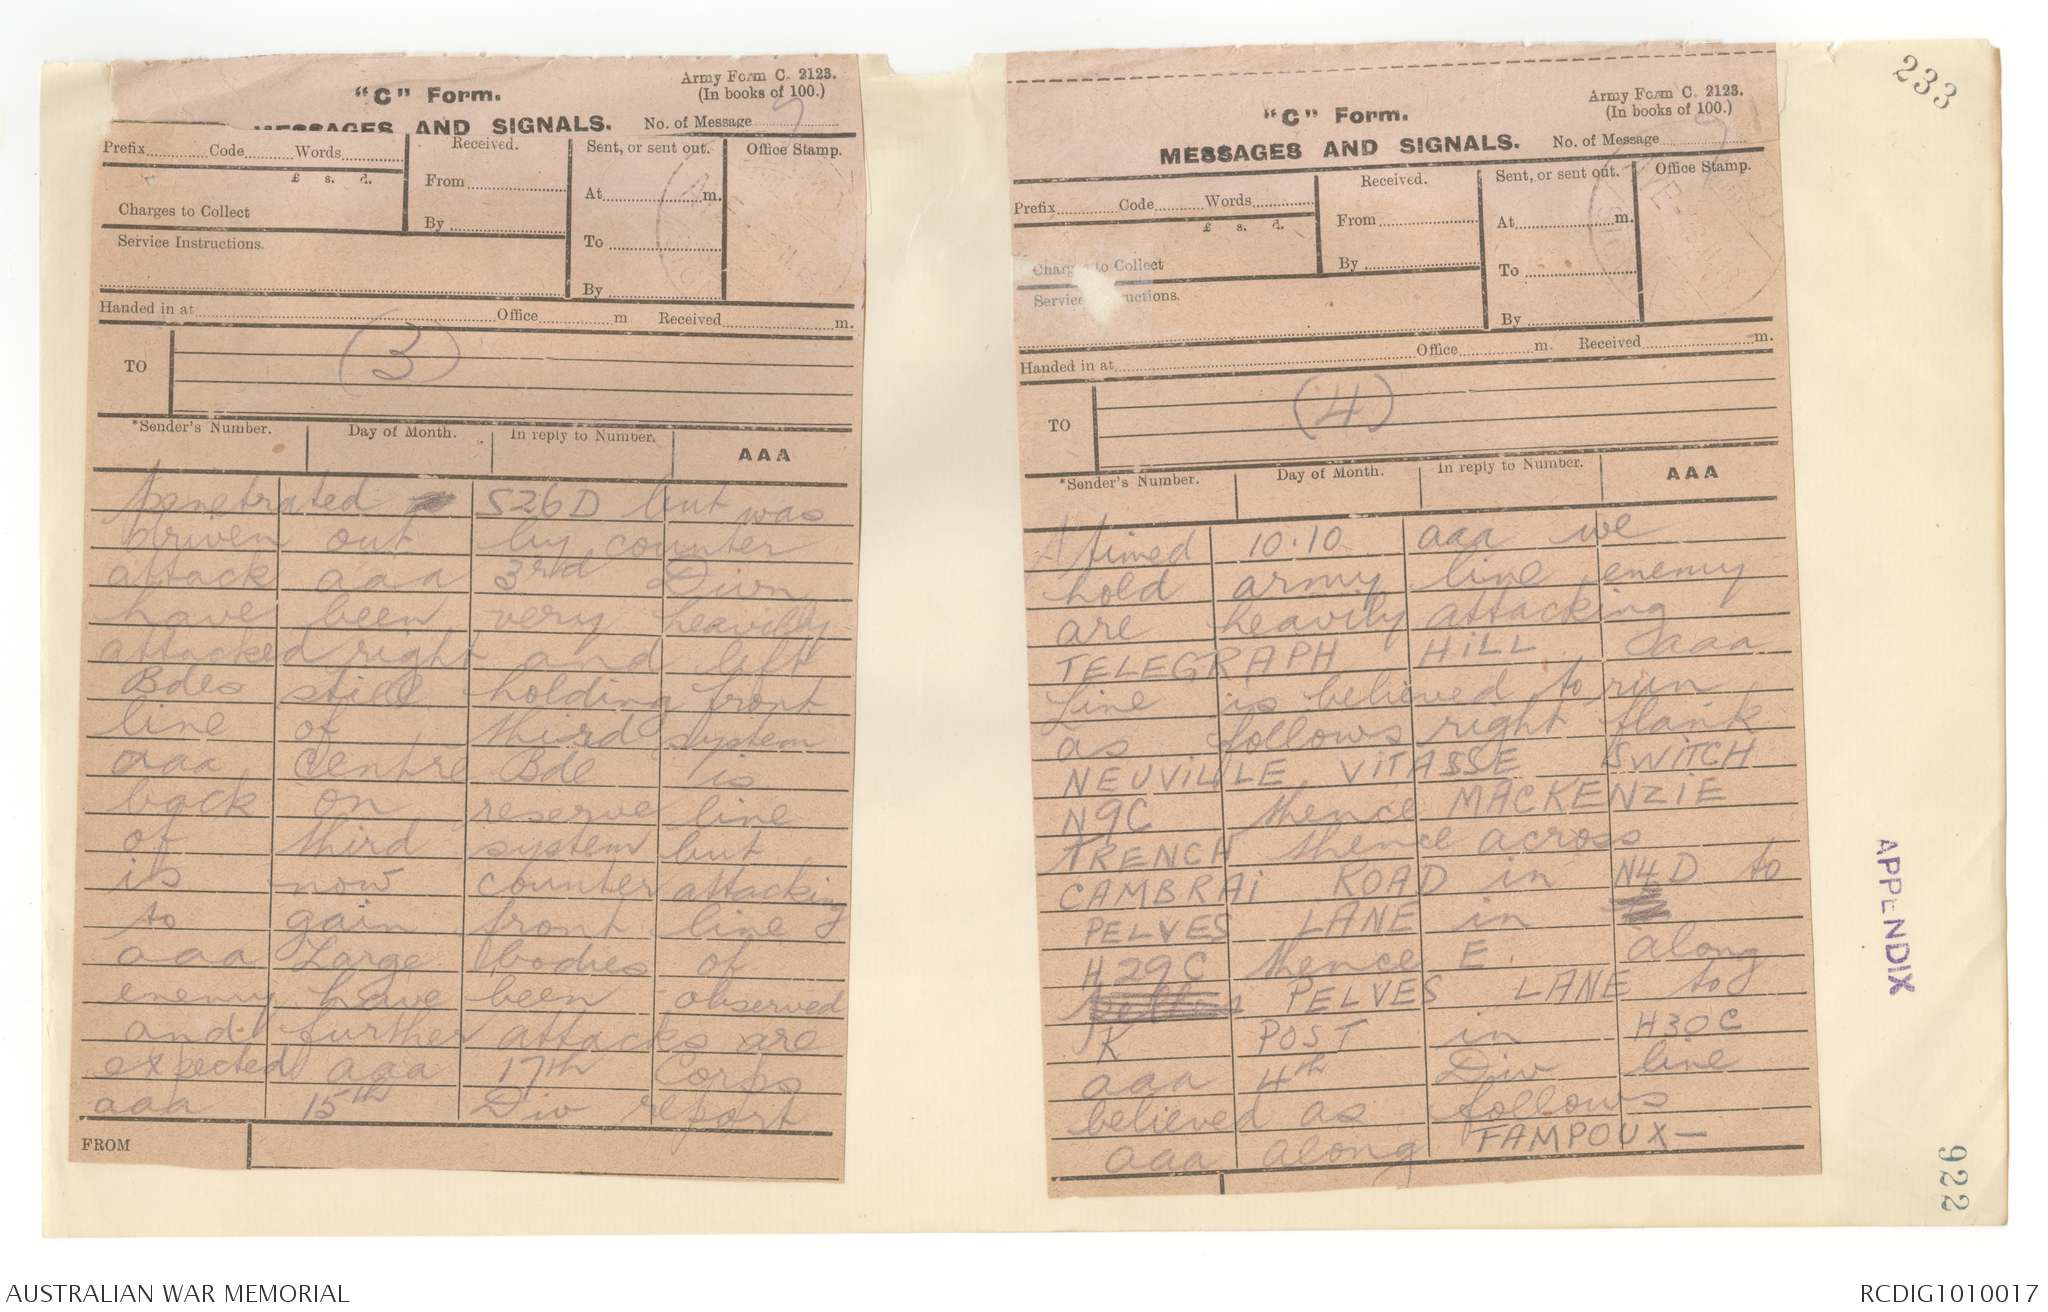 "C" Form.
Army Form C. 2123.
(In books of 100.)
MESSAGES AND SIGNALS.
No. of Message
Prefix Code Words
Received.
Sent, or sent out.
Office Stamp.
£ s. d.
From
At m.
Charges to Collect
By
To
Service Instructions.
By
Handed in at Office m Received m.
TO
(3)
*Sender's Number.
Day of Month.
In reply to Number.
AAA
penetrated S26D but was
driven out by counter
attack aaa 3rd Divn
have been very heavily
attacked right and left
Bdes still holding front
line of third system
aaa Centre Bde is
back on reserve line
of third system but
is now counter attacking
to gain front line
aaa Large bodies of
enemy have been observed
and further attacks are
expected aaa 17th Corps
aaa 15th Div report
FROM
"C" Form.
Army Form C. 2123.
(In books of 100.)
MESSAGES AND SIGNALS.
No. of Message
Prefix Code Words
Received.
Sent, or sent out.
Office Stamp.
£ s. d.
From
At m.
Charges to Collect
By
To
Service Instructions.
By
Handed in at Office m. Received m.
TO
(4)
*Sender's Number.
Day of Month.
In reply to Number.
AAA
timed 10.10 aaa we
hold army line enemy
are heavily attacking
TELEGRAPH HILL aaa
Line is believed to run
as follows right flank
NEUVILLE VITASSE SWITCH
N9C thence MACKENZIE
TRENCH thence across
CAMBRAI ROAD in N4D to
PELVES LANE in
H29C thence E. along
PELVES LANE to
K POST in H30C
aaa 4th Div line
believed as follows
aaa along FAMPOUX—
233
APPENDIX
922
AUSTRALIAN WAR MEMORIAL
RCDIG1010017